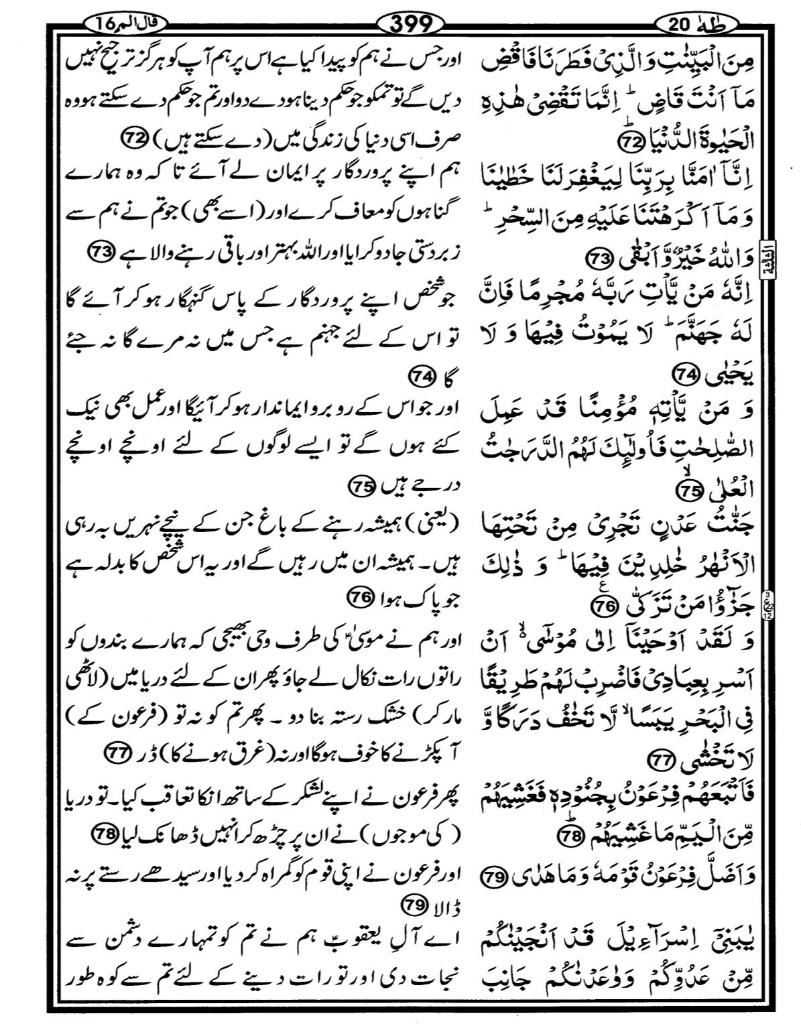 طٰهٰ 20
399
قال الم 16
مِنَ الْبَيِّنٰتِ وَالَّذِیْ فَطَرَنَا فَاقْضِ
مَاۤ اَنْتَ قَاضٍ ؕ اِنَّمَا تَقْضِیْ هٰذِهِ
الْحَيٰوةَ الدُّنْيَا ؕ 72
اِنَّاۤ اٰمَنَّا بِرَبِّنَا لِيَغْفِرَ لَنَا خَطٰيٰنَا
وَ مَاۤ اَكْرَهْتَنَا عَلَيْهِ مِنَ السِّحْرِ ؕ
وَاللّٰهُ خَيْرٌ وَّ اَبْقٰى 73
اِنَّهٗ مَنْ يَّاْتِ رَبَّهٗ مُجْرِمًا فَاِنَّ
لَهٗ جَهَنَّمَ ؕ لَا يَمُوْتُ فِيْهَا وَ لَا
يَحْيٰى 74
وَ مَنْ يَّاْتِهٖ مُؤْمِنًا قَدْ عَمِلَ
الصّٰلِحٰتِ فَاُولٰٓئِكَ لَهُمُ الدَّرَجٰتُ
الْعُلٰى ۙ 75
جَنّٰتُ عَدْنٍ تَجْرِیْ مِنْ تَحْتِهَا
الْاَنْهٰرُ خٰلِدِيْنَ فِيْهَا ؕ وَ ذٰلِكَ
جَزٰٓؤُا مَنْ تَزَكّٰى ع 76
وَ لَقَدْ اَوْحَيْنَاۤ اِلٰى مُوْسٰۤى ۙ اَنْ
اَسْرِ بِعِبَادِیْ فَاضْرِبْ لَهُمْ طَرِيْقًا
فِی الْبَحْرِ يَبَسًا ۙ لَّا تَخٰفُ دَرَكًا وَّ
لَا تَخْشٰى 77
فَاَتْبَعَهُمْ فِرْعَوْنُ بِجُنُوْدِهٖ فَغَشِيَهُمْ
مِّنَ الْيَمِّ مَا غَشِيَهُمْ ؕ 78
وَ اَضَلَّ فِرْعَوْنُ قَوْمَهٗ وَ مَا هَدٰى 79
يٰبَنِیْۤ اِسْرَآءِيْلَ قَدْ اَنْجَيْنٰكُمْ
مِّنْ عَدُوِّكُمْ وَ وٰعَدْنٰكُمْ جَانِبَ
اور جس نے ہم کو پیدا کیا ہے اس پر ہم آپ کو ہرگز ترجیح نہیں
دیں گے تو تمکو جو حکم دینا ہو دے دو اور تم جو حکم دے سکتے ہو وہ
صرف اسی دنیا کی زندگی میں (دے سکتے ہیں) 72
ہم اپنے پروردگار پر ایمان لے آئے تا کہ وہ ہمارے
گناہوں کو معاف کرے اور (اسے بھی) جو تم نے ہم سے
زبردستی جادو کرایا اور اللہ بہتر اور باقی رہنے والا ہے 73
جو شخص اپنے پروردگار کے پاس گنہگار ہو کر آئے گا
تو اس کے لئے جہنم ہے جس میں نہ مرے گا نہ جئے
گا 74
اور جو اس کے روبرو ایماندار ہو کر آئیگا اور عمل بھی نیک
کئے ہوں گے تو ایسے لوگوں کے لئے اونچے اونچے
درجے ہیں 75
(یعنی) ہمیشہ رہنے کے باغ جن کے نیچے نہریں بہ رہی
ہیں۔ ہمیشہ ان میں رہیں گے اور یہ اس شخص کا بدلہ ہے
جو پاک ہوا 76
اور ہم نے موسیٰؑ کی طرف وحی بھیجی کہ ہمارے بندوں کو
راتوں رات نکال لے جاؤ پھر ان کے لئے دریا میں (لاٹھی
مار کر) خشک رستہ بنا دو ۔ پھر تم کو نہ تو (فرعون کے)
آ پکڑنے کا خوف ہوگا اور نہ (غرق ہونے کا) ڈر 77
پھر فرعون نے اپنے لشکر کے ساتھ انکا تعاقب کیا۔ تو دریا
(کی موجوں) نے ان پر چڑھ کر انہیں ڈھانک لیا 78
اور فرعون نے اپنی قوم کو گمراہ کردیا اور سیدھے رستے پر نہ
ڈالا 79
اے آلِ یعقوبؑ ہم نے تم کو تمہارے دشمن سے
نجات دی اور تورات دینے کے لئے تم سے کوہ طور
الثلثة